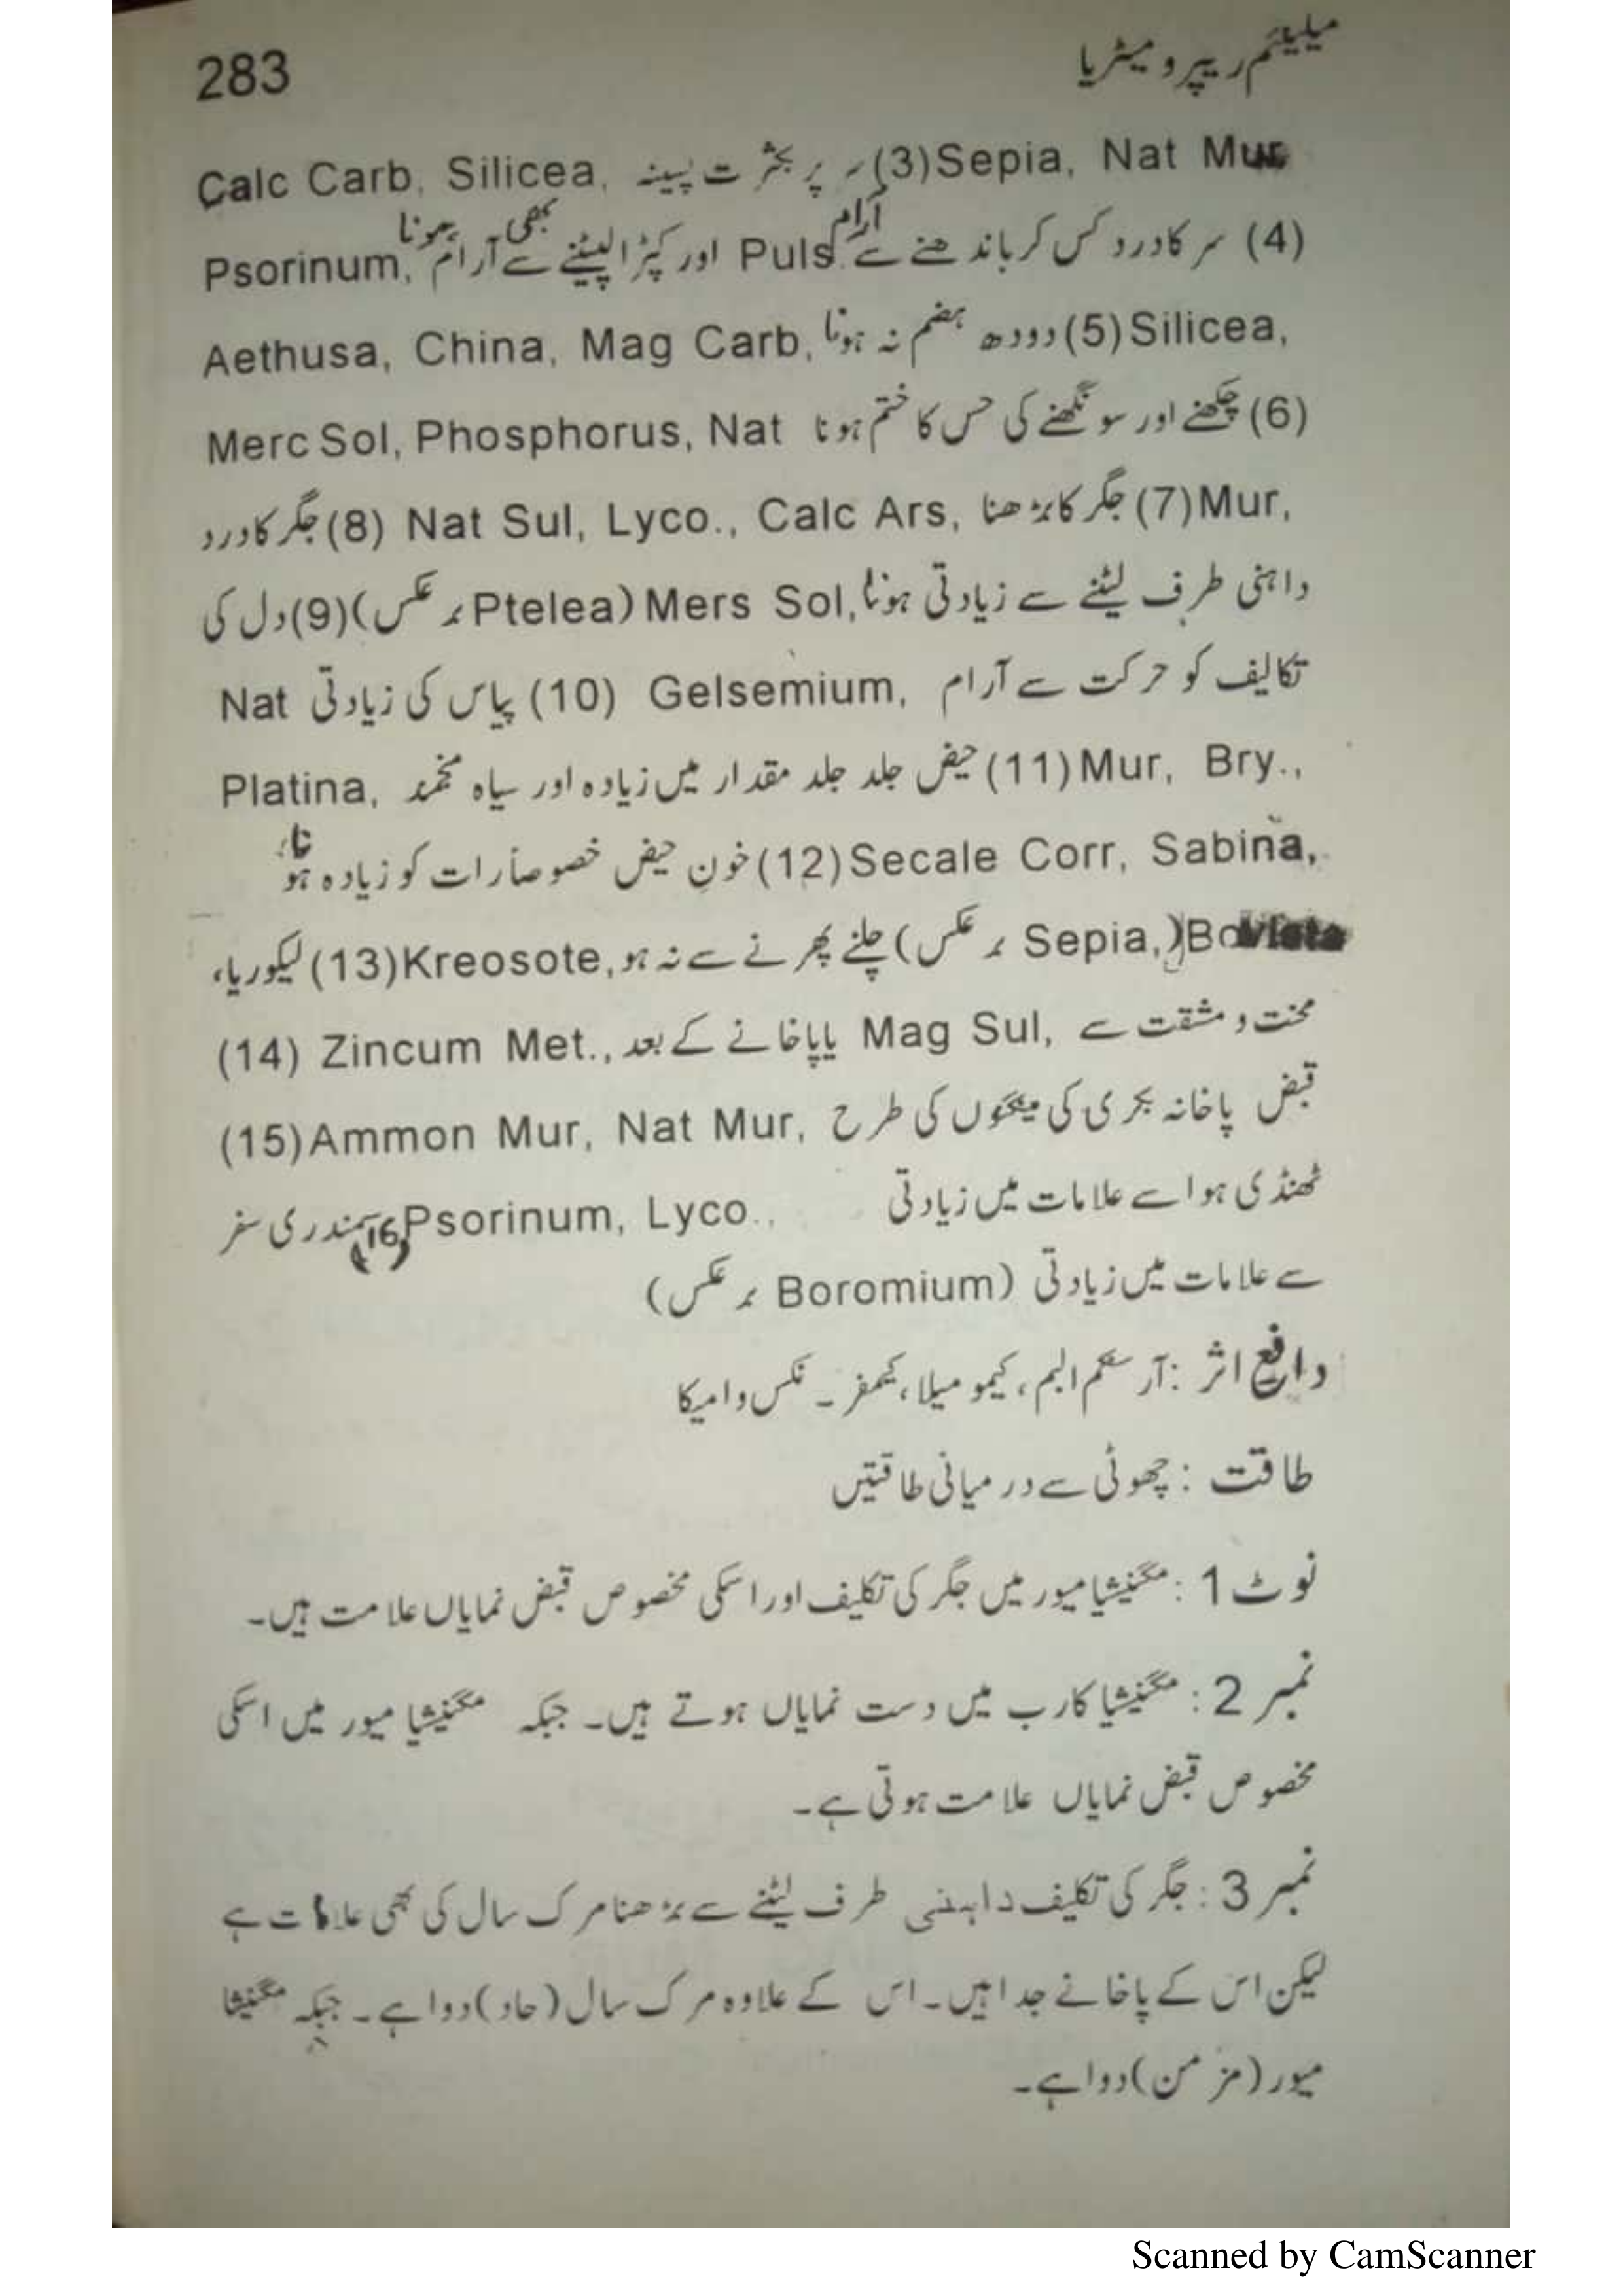 283 میلینئم ریپرو میٹریا
Sepia, Nat Mur (3) سر پر بکثرت پسینہ Calc Carb, Silicea,
(4) سر کا درد کس کر باندھنے سے آرام Puls. اور کپڑا لپیٹنے سے بھی آرام ہونا Psorinum,
Silicea, (5) دودھ ہضم نہ ہونا Aethusa, China, Mag Carb,
(6) چکھنے اور سونگھنے کی حس کا ختم ہونا Merc Sol, Phosphorus, Nat
Mur, (7) جگر کا بڑھنا Nat Sul, Lyco., Calc Ars, (8) جگر کا درد
داہنی طرف لیٹنے سے زیادتی ہونا Mers Sol, (Ptelea بر عکس) (9) دل کی
تکالیف کو حرکت سے آرام Gelsemium, (10) پیاس کی زیادتی Nat
Mur, Bry., (11) حیض جلد جلد مقدار میں زیادہ اور سیاہ منجمد Platina,
Secale Corr, Sabina, (12) خون حیض خصوصاً رات کو زیادہ ہونا،
Bovista (Sepia, بر عکس) چلنے پھرنے سے نہ ہو Kreosote, (13) لیکوریا،
محنت و مشقت سے Mag Sul, یا پاخانے کے بعد Zincum Met., (14)
قبض پاخانہ بکری کی مینگنوں کی طرح Ammon Mur, Nat Mur, (15)
ٹھنڈی ہوا سے علامات میں زیادتی Psorinum, Lyco., (16) سمندری سفر
سے علامات میں زیادتی (Boromium بر عکس)
دافع اثر : آرسنکم البم، کیمومیلا، کیمفر۔ نکس وامیکا
طاقت : چھوٹی سے درمیانی طاقتیں
نوٹ 1 : مگنیشیا میور میں جگر کی تکلیف اور اسکی مخصوص قبض نمایاں علامت ہیں۔
نمبر 2 : مگنیشیا کارب میں دست نمایاں ہوتے ہیں۔ جبکہ مگنیشیا میور میں اسکی
مخصوص قبض نمایاں علامت ہوتی ہے۔
نمبر 3 : جگر کی تکلیف داہنی طرف لیٹنے سے بڑھنا مرک سال کی بھی علامات ہے
لیکن اس کے پاخانے جدا ہیں۔ اس کے علاوہ مرک سال (حاد) دوا ہے۔ جبکہ مگنیشیا
میور (مزمن) دوا ہے۔
Scanned by CamScanner